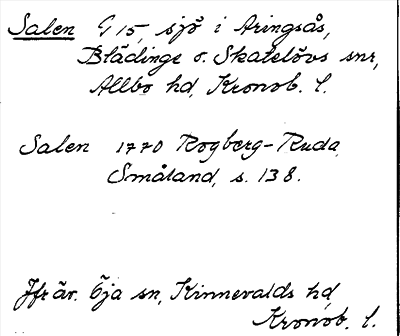 Salen G 15, sjö i Aringsås,
Blädinge o. Skatelövs snr,
Allbo hd, Kronob. l.
Salen 1770 Rogberg-Ruda,
Småland, s. 138.
Jfr äv. Öja sn, Kinnevalds hd,
Kronob. l.